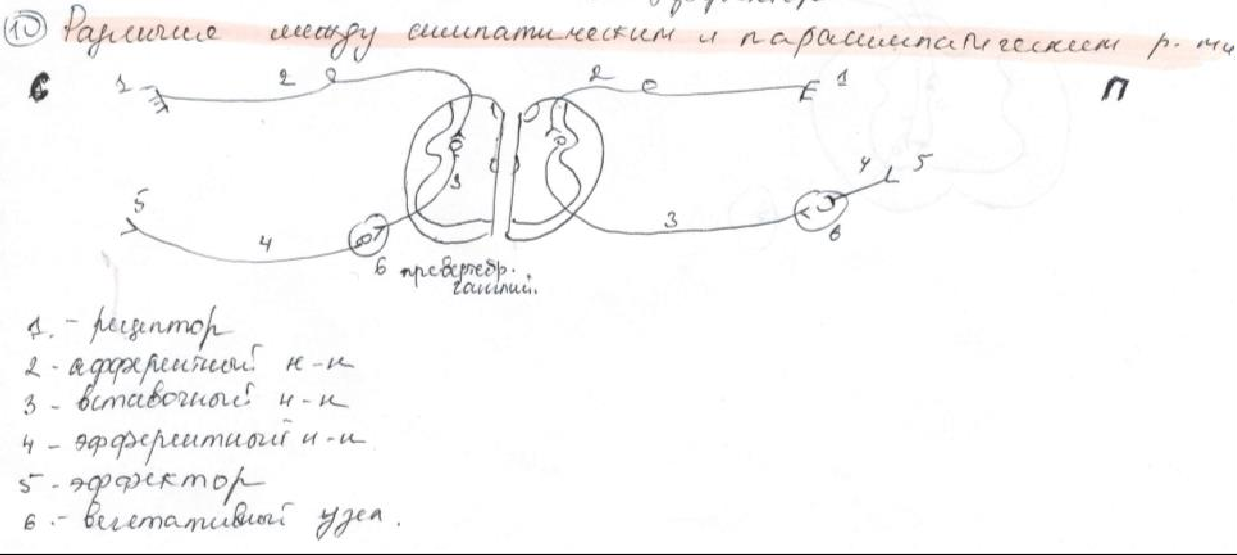 10 Различие между симпатическим и парасимпатическим р.
С 1 2 2 1 П
5 4 3 3 4 5
6 превертебр. 6
ганглий.
1. - рецептор
2 - афферентный н-н
3 - вставочный н-н
4 - эфферентный н-н
5 - эффектор
6 - вегетативный узел.